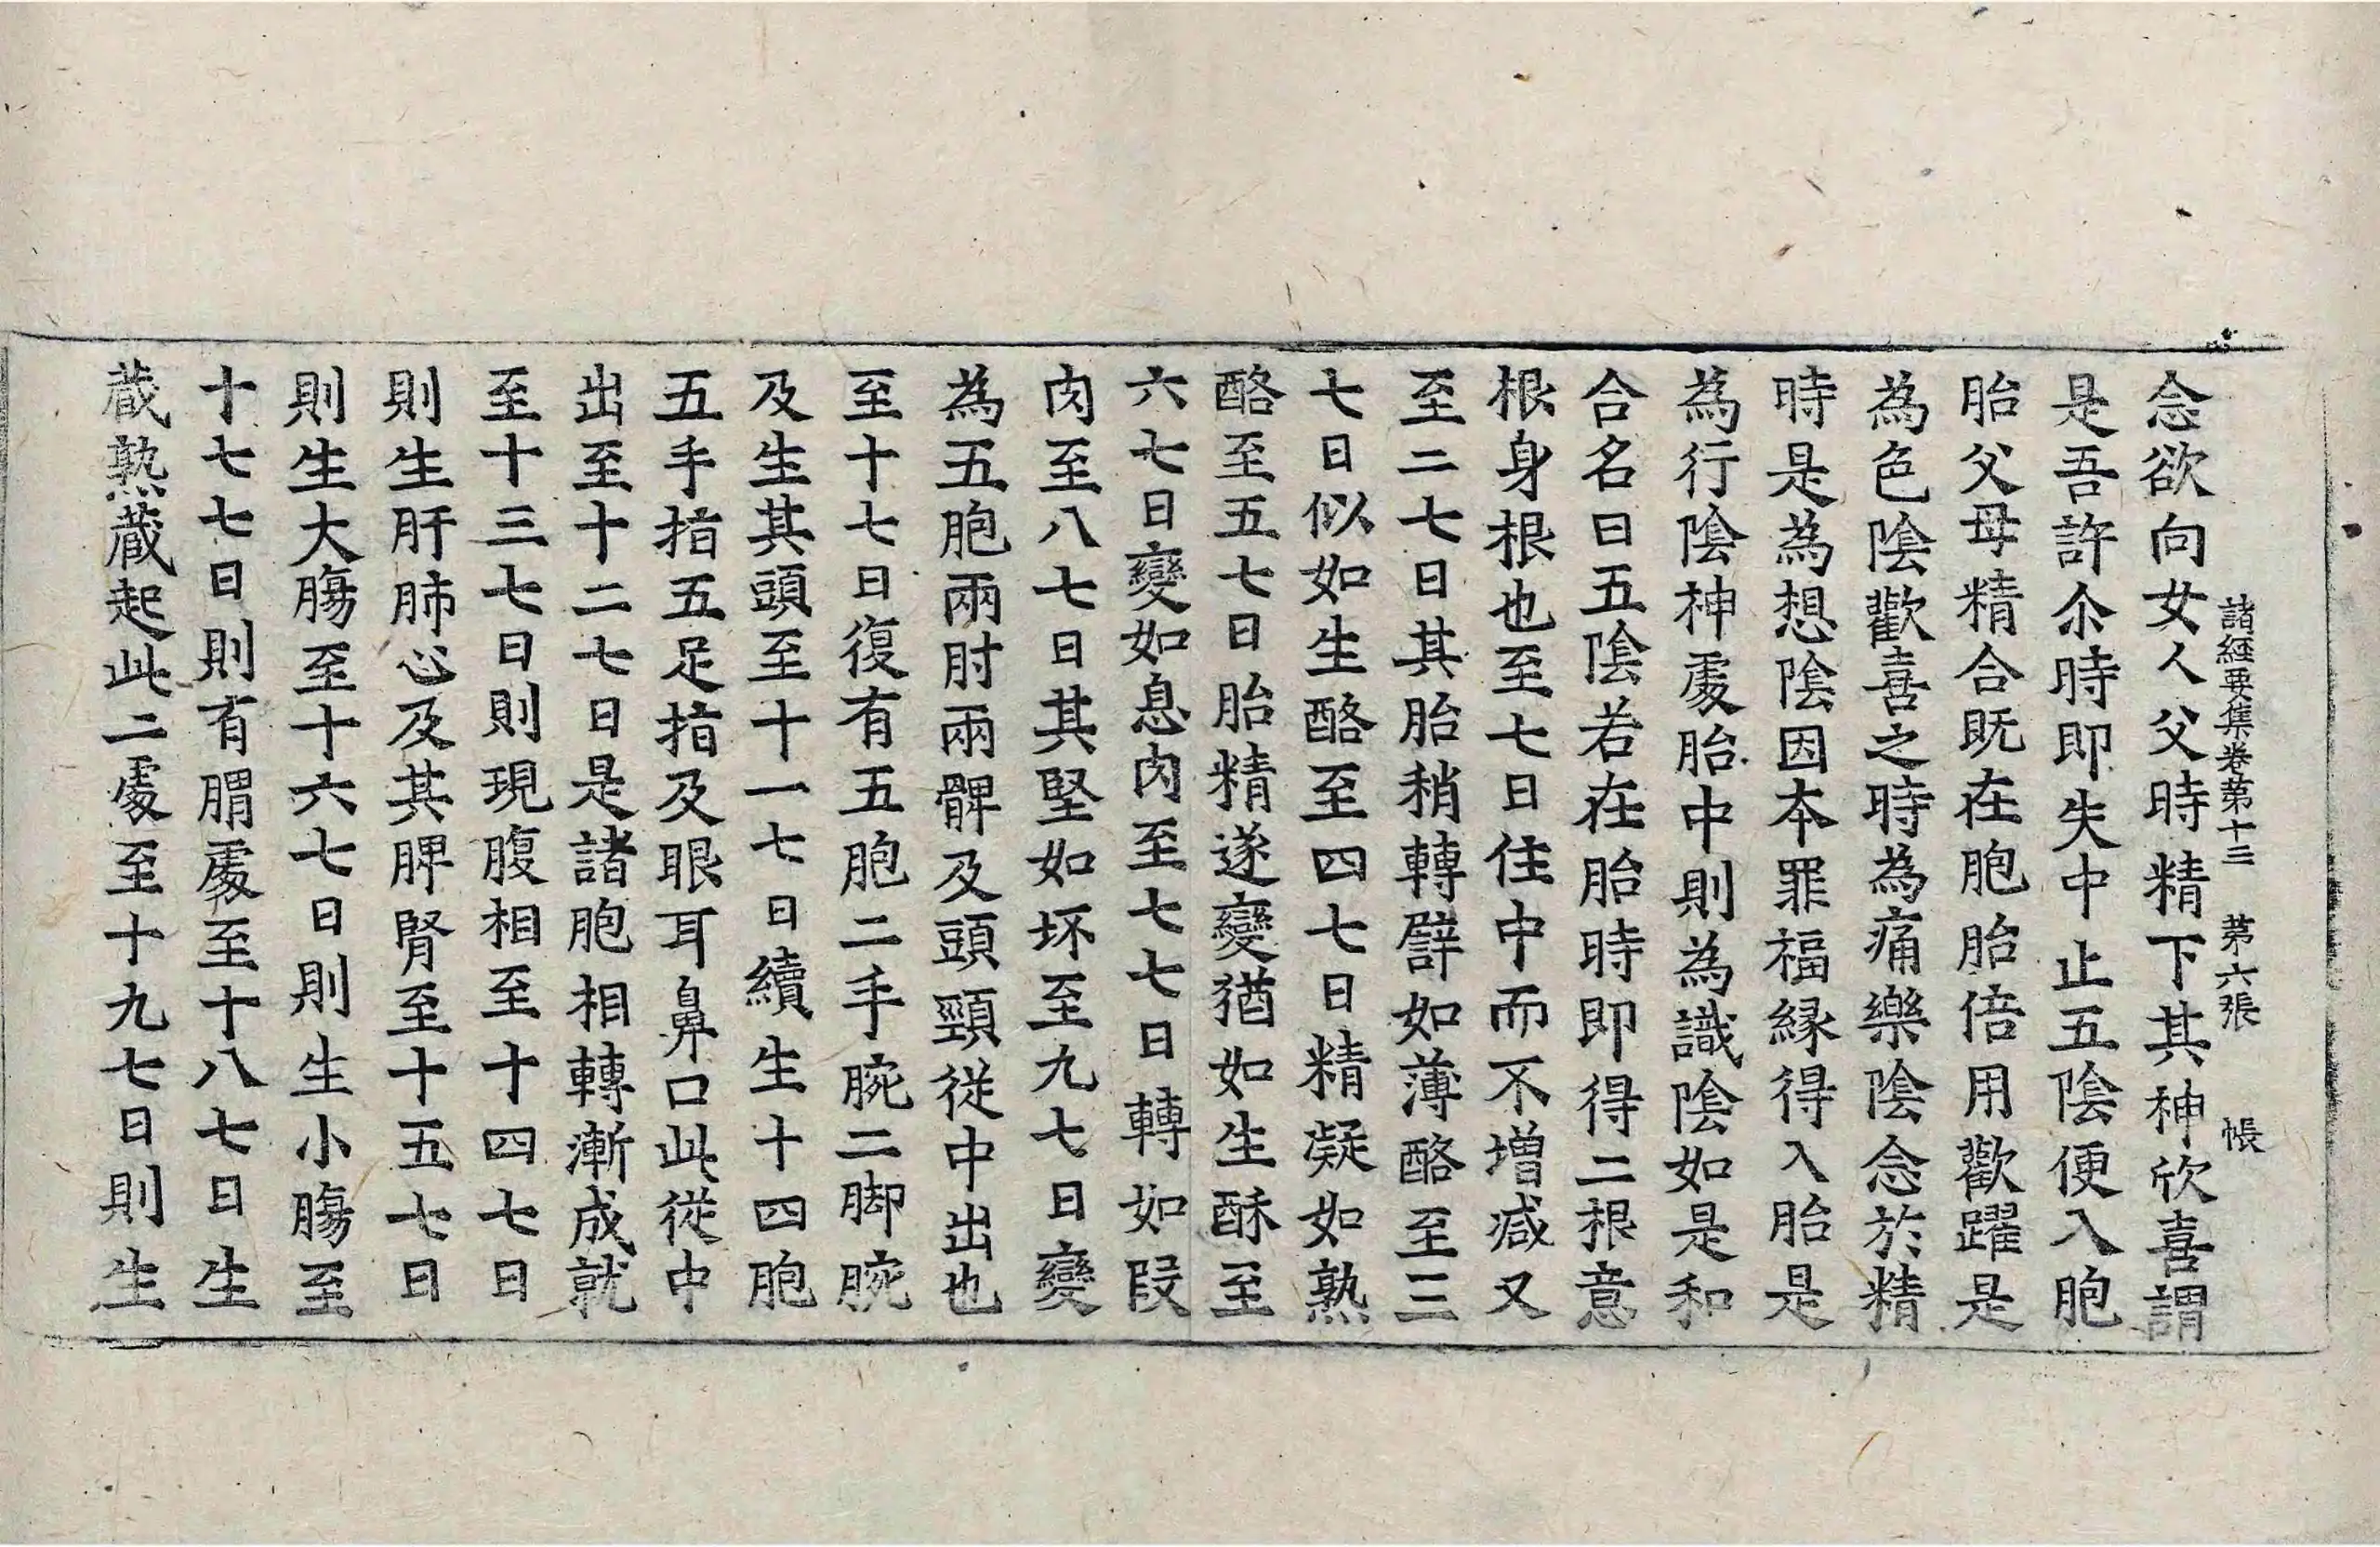 諸經要集卷第十三　第六張　帳
念欲向女人父時精下其神欣喜謂
是吾許尒時即失中止五陰便入胞
胎父母精合既在胞胎倍用歡躍是
為色陰歡喜之時為痛樂陰念於精
時是為想陰因本罪福緣得入胎是
為行陰神處胎中則為識陰如是和
合名曰五陰若在胎時即得二根意
根身根也至七日住中而不增減又
至二七日其胎稍轉譬如薄酪至三
七日似如生酪至四七日精凝如熟
酪至五七日胎精遂變猶如生酥至
六七日變如息肉至七七日轉如段
肉至八七日其堅如坏至九七日變
為五胞兩肘兩髀及頭頸從中出也
至十七日復有五胞二手腕二脚腕
及生其頭至十一七日續生十四胞
五手指五足指及眼耳鼻口此從中
出至十二七日是諸胞相轉漸成就
至十三七日則現腹相至十四七日
則生肝肺心及其脾腎至十五七日
則生大膓至十六七日則生小膓至
十七七日則有胃處至十八七日生
藏熟藏起此二處至十九七日則生